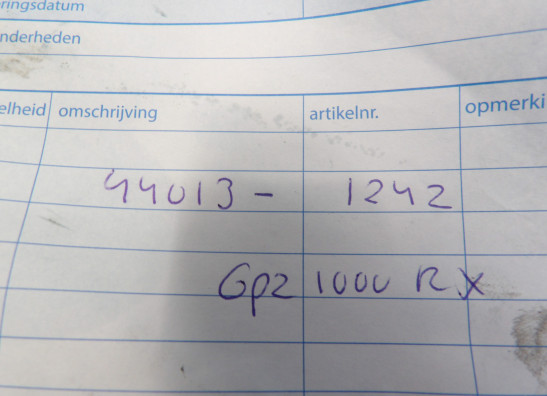 ringsdatum
nderheden
elheid omschrijving artikelnr. opmerki
44013 - 1242
Gpz 1000 RX